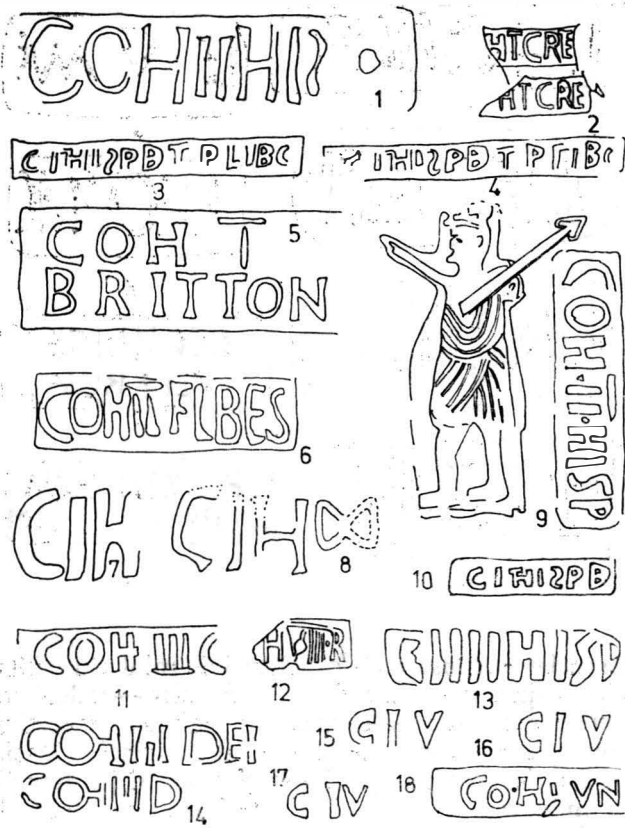 COHIIHIS
1
HTCRE
HTCRE
2
CIHISPBTPLIBC
3
IHISPBTPLIBC
4
COH I
BRITTON
5
COHIIFLBES
6
CIH
7
CIH
8
COH·II·HISP
9
CIHISPB
10
COH IIII C
11
H IIII·R
12
CIIIIHISP
13
COHIII DEI
COHIII D
14
15
CIV
16
CIV
17
CIV
18
CO·H VN